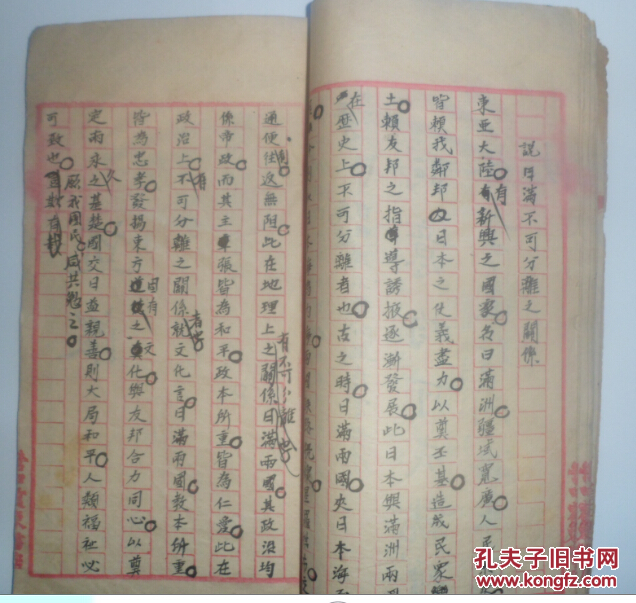 說日滿不可分離之關係
東亞大陸有新興之國家名曰滿洲疆域寬廣人民
皆賴我鄰邦日本之仗義盡力以奠丕基造成民眾
土賴友邦之指導誘掖逐漸發展此日本與滿洲兩
在歷史上不可分離者也古之時日滿兩國夾日本海而
通便往返無阻此在地理上之關係有不可分離者日滿兩國其政治均
係帝政而其主張皆為和平政本所重皆為仁愛此在
政治上有不可分離之關係者就文化言日滿兩國教本所重
皆為忠孝發揚東方固有之文化與友邦合力同心以奠
定兩永久之基楚國交日益親善則大局和平人類福祉必
可致也願我國民咸共勉之
孔夫子旧书网
www.kongfz.com